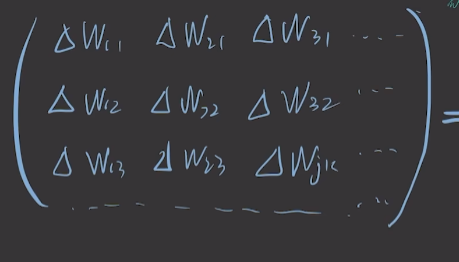 ΔW₁₁ ΔW₂₁ ΔW₃₁ ....
ΔW₁₂ ΔW₂₂ ΔW₃₂ ... =
ΔW₁₃ ΔW₂₃ ΔWjk ...
..... - - - — ....